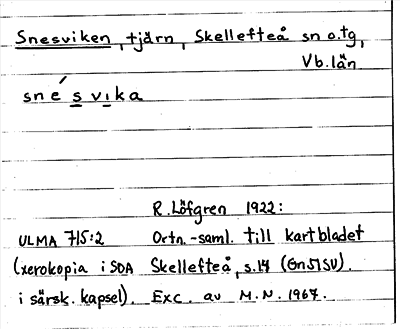 Snesviken, tjärn, Skellefteå sn o. tg,
Vb. län
snésvika
R. Löfgren 1922:
ULMA 715:2 Ortn.-saml. till kartbladet
(xerokopia i SOA Skellefteå, s. 14 (Gn51SV).
i särsk. kapsel). Exc. av M.N. 1967.